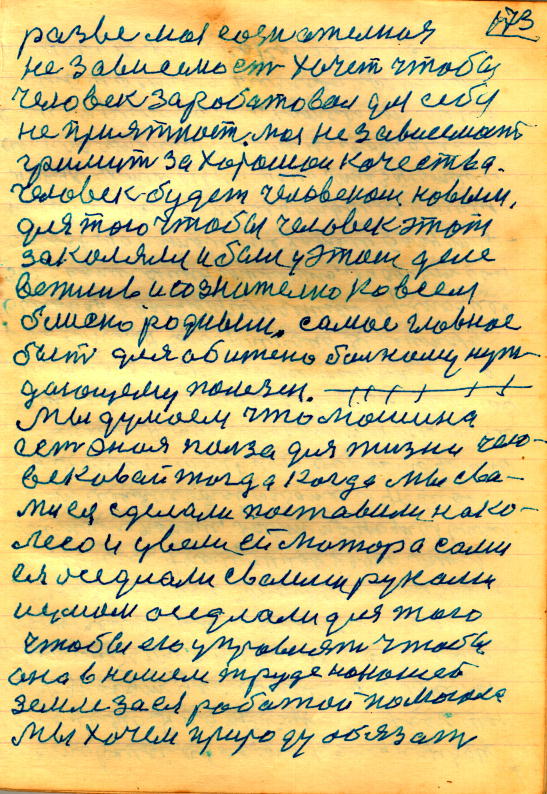 173
разве моя сознателная
не зависемост хочет чтобы
человек заработовал для себя
не приятност. моя не зависемост
гримит за хорошои качества.
человек будет человеком новым,
для того чтобы человек этот
заколяли и были у этом деле
вежлив и сознателно ко всем
блиско родным. самое главное
быт для обижено болному нуж-
дающему полезен.
Мы думаем что мошина
ест оная полза для жизни чело-
вековай тогда когда мы сва-
ми ея сделали поставили на ко-
лесо и увели ей мотора сами
ея оседлали своими руками
и умом оседлали для того
чтобы его управлят чтобы
она в ношем труде на ношей
земле за ея работой помогала
мы хочем природу обязат